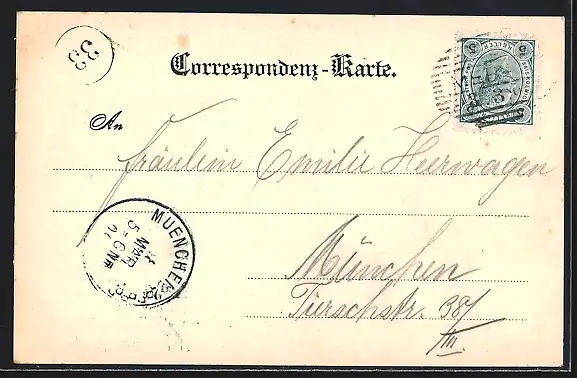 33
Correspondenz-Karte.
An
Fräulein Emilie Heerwagen
München
Tierschstr. 38/
III.
MUENCHEN
5
5
HELLER